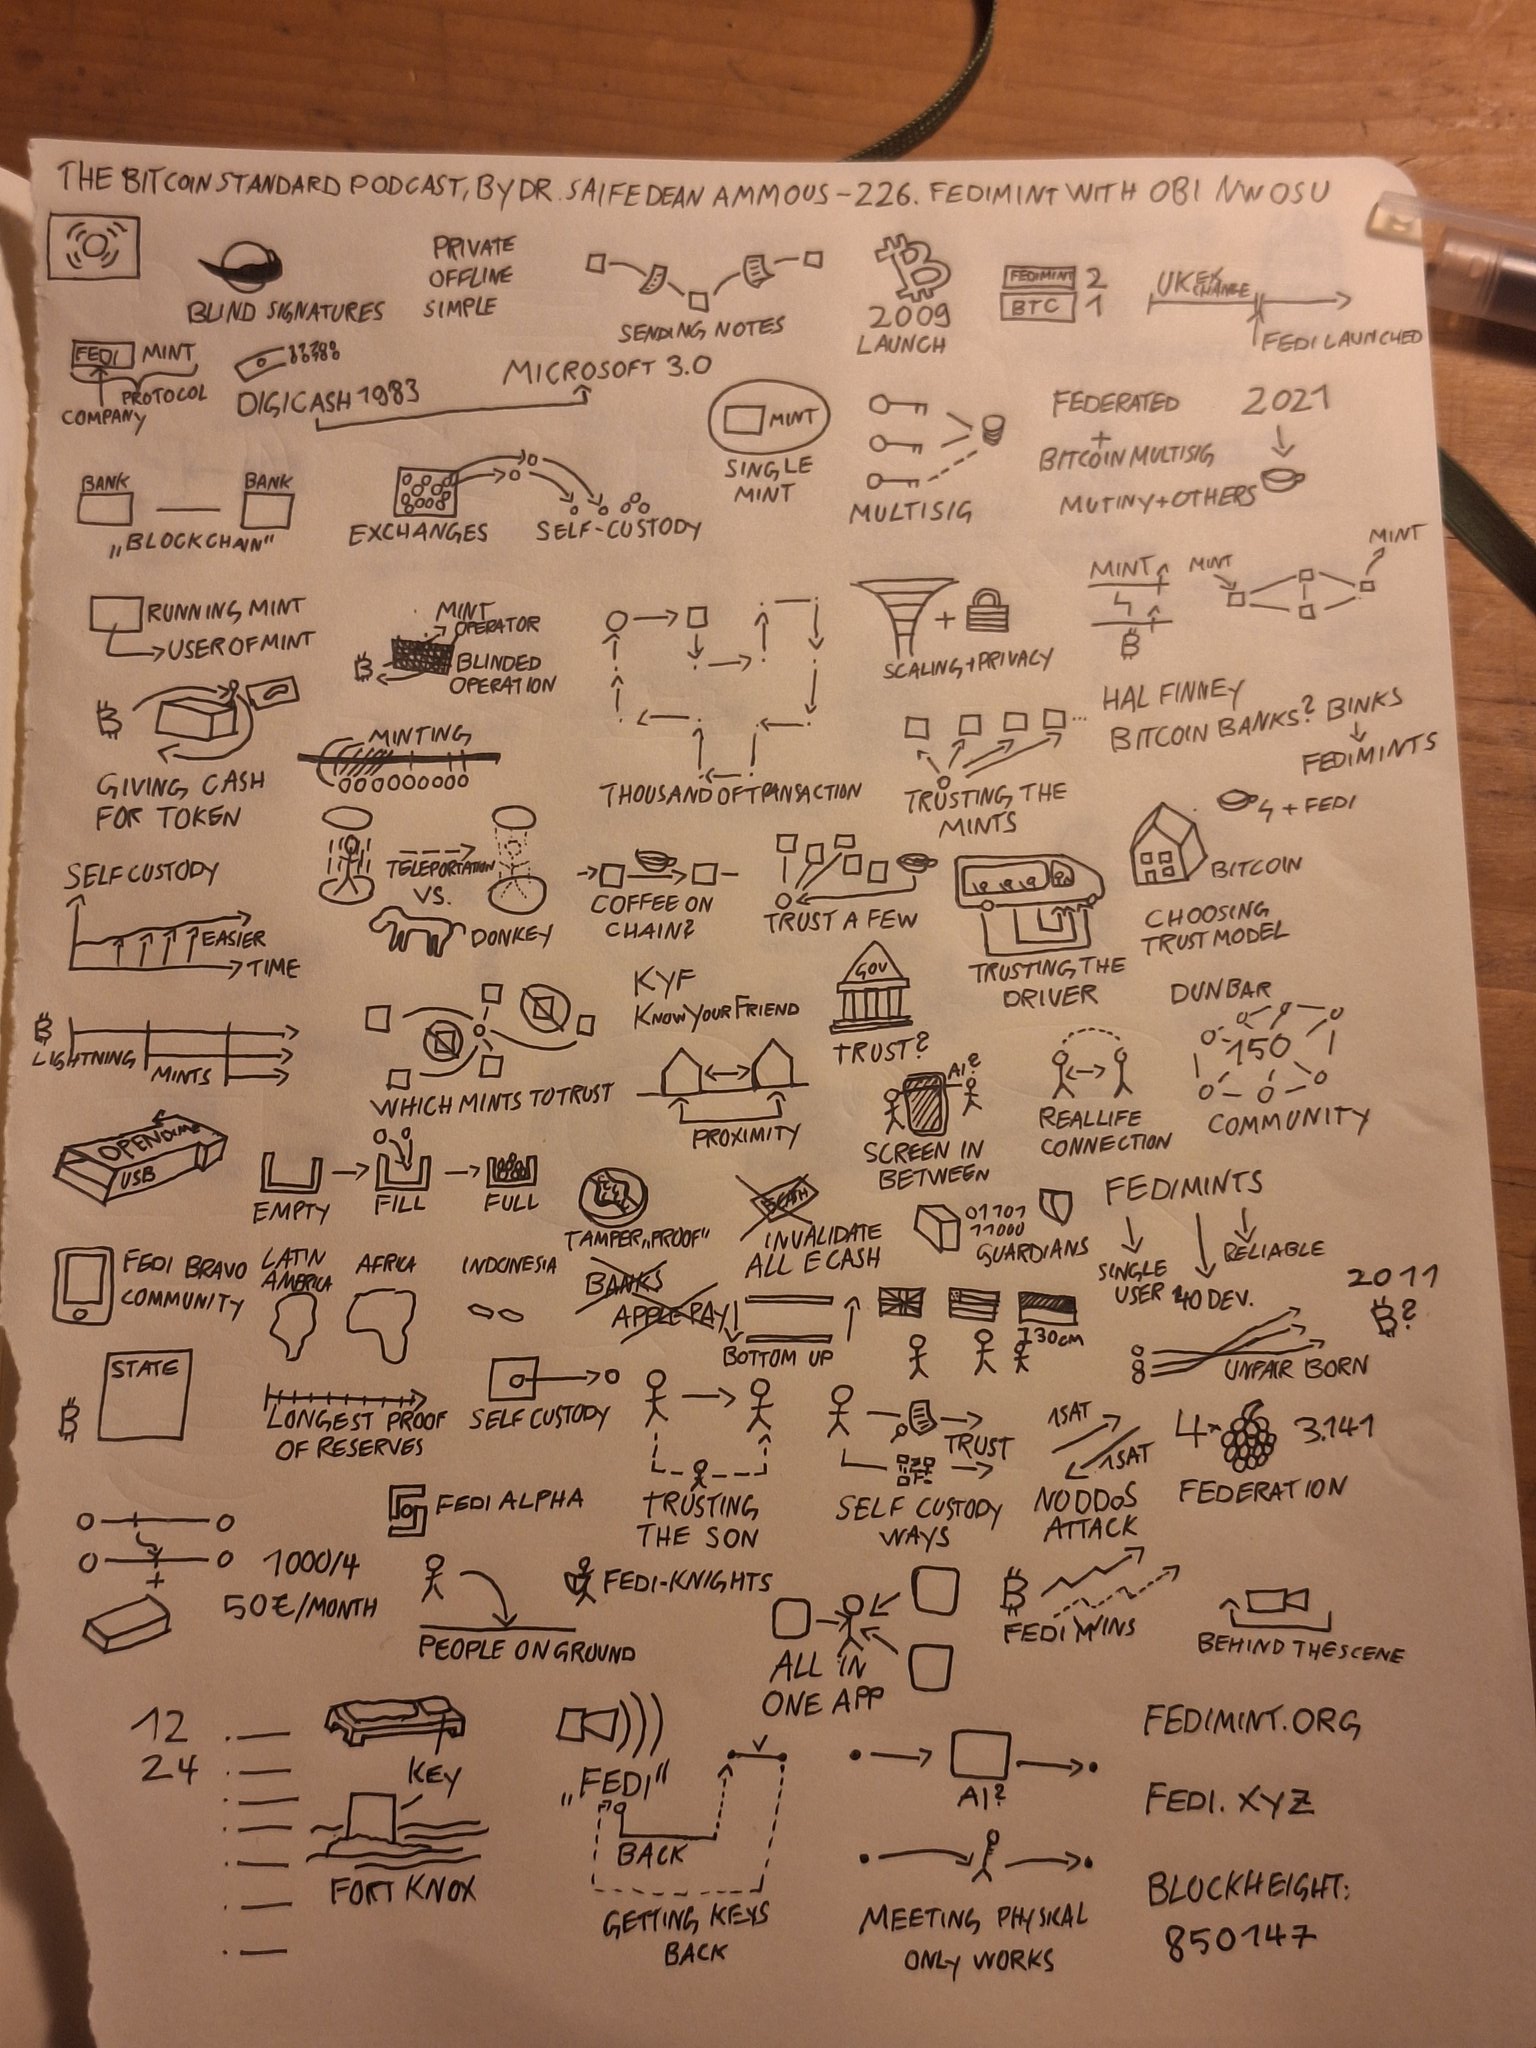 THE BITCOIN STANDARD PODCAST, BY DR. SAIFEDEAN AMMOUS – 226. FEDIMINT WITH OBI NWOSU
BLIND SIGNATURES
PRIVATE
OFFLINE
SIMPLE
SENDING NOTES
2009
LAUNCH
FEDIMINT 2
BTC 1
UK EXCHANGE
FEDI LAUNCHED
FEDI MINT
COMPANY
PROTOCOL
DIGICASH 1983
MICROSOFT 3.0
MINT
SINGLE
MINT
MULTISIG
FEDERATED
+
BITCOIN MULTISIG
2021
MUTINY + OTHERS
BANK
BANK
„BLOCKCHAIN"
EXCHANGES
SELF-CUSTODY
RUNNING MINT
USER OF MINT
MINT
OPERATOR
BLINDED
OPERATION
+
SCALING + PRIVACY
MINT
MINT
MINT
GIVING CASH
FOR TOKEN
MINTING
THOUSAND OF TRANSACTION
TRUSTING THE
MINTS
HAL FINNEY
BITCOIN BANKS? BINKS
FEDIMINTS
SELF CUSTODY
EASIER
TIME
TELEPORTATION
VS.
DONKEY
COFFEE ON
CHAIN?
TRUST A FEW
TRUSTING THE
DRIVER
+ FEDI
BITCOIN
CHOOSING
TRUST MODEL
LIGHTNING
MINTS
WHICH MINTS TO TRUST
KYF
KNOW YOUR FRIEND
PROXIMITY
GOV
TRUST?
AI?
SCREEN IN
BETWEEN
REAL LIFE
CONNECTION
DUNBAR
150
COMMUNITY
OPENDIME
USB
EMPTY
FILL
FULL
TAMPER „PROOF"
ECASH
INVALIDATE
ALL E CASH
01101
11000
GUARDIANS
FEDIMINTS
SINGLE
USER
40 DEV.
RELIABLE
FEDI BRAVO
COMMUNITY
LATIN
AMERICA
AFRICA
INDONESIA
BANKS
APPLE PAY
BOTTOM UP
130cm
UNFAIR BORN
2011
?
STATE
LONGEST PROOF
OF RESERVES
SELF CUSTODY
TRUSTING
THE SON
TRUST
SELF CUSTODY
WAYS
1SAT
1SAT
NO DDoS
ATTACK
4
3.141
FEDERATION
FEDI ALPHA
1000/4
+
50€/MONTH
PEOPLE ON GROUND
FEDI-KNIGHTS
ALL IN
ONE APP
FEDI WINS
BEHIND THE SCENE
12
24
KEY
FORT KNOX
„FEDI"
BACK
GETTING KEYS
BACK
AI?
MEETING PHYSICAL
ONLY WORKS
FEDIMINT.ORG
FEDI.XYZ
BLOCKHEIGHT:
850147